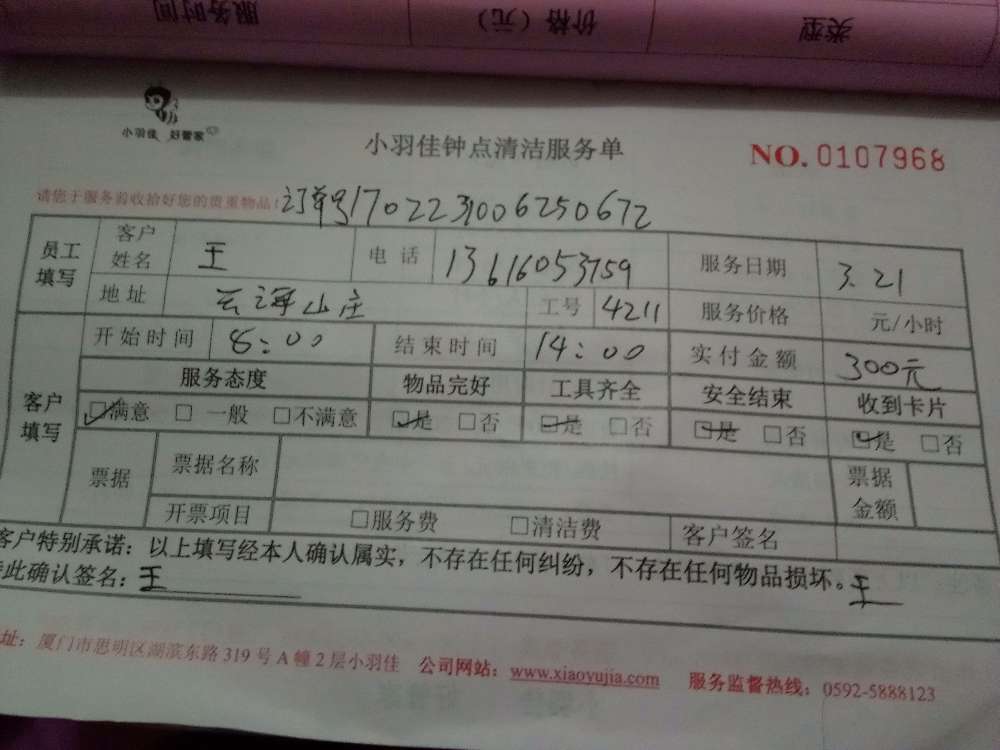 服务时间 价格（元） 类型
小羽佳 好管家
小羽佳钟点清洁服务单 NO. 0107968
请您于服务前收拾好您的贵重物品！ 订单号1702231006250672
员工填写 客户姓名 王 电话 13616053759 服务日期 3.21
地址 云海山庄 工号 4211 服务价格 元/小时
客户填写 开始时间 8:00 结束时间 14:00 实付金额 300元
服务态度 物品完好 工具齐全 安全结束 收到卡片
☑满意 □一般 □不满意 ☑是 □否 ☑是 □否 ☑是 □否 ☑是 □否
票据 票据名称 票据金额
开票项目 □服务费 □清洁费 客户签名
客户特别承诺：以上填写经本人确认属实，不存在任何纠纷，不存在任何物品损坏。王
此确认签名：王
址：厦门市思明区湖滨东路319号A幢2层小羽佳 公司网站：www.xiaoyujia.com 服务监督热线：0592-5888123